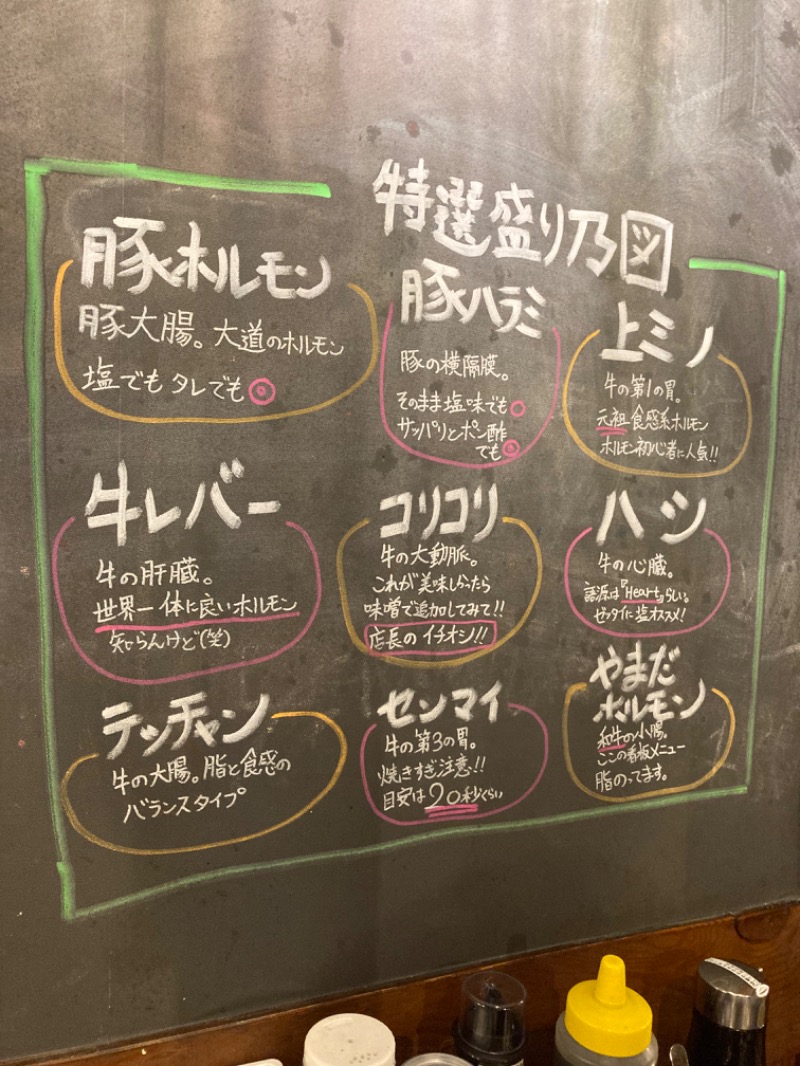 特選盛り乃図
豚ホルモン
豚大腸。大道のホルモン
塩でもタレでも◎
豚ハラミ
豚の横隔膜。
そのまま塩味でも○
サッパリとポン酢
でも◎
上ミノ
牛の第1の胃。
元祖食感系ホルモン
ホルモン初心者に人気!!
牛レバー
牛の肝臓。
世界一体に良いホルモン
知らんけど(笑)
コリコリ
牛の大動脈。
これが美味しかったら
味噌で追加してみて!!
店長のイチオシ!!
ハツ
牛の心臓。
語源は『Heart』らしい。
ゼッタイに塩オススメ!
テッチャン
牛の大腸。脂と食感の
バランスタイプ
センマイ
牛の第3の胃。
焼きすぎ注意!!
目安は20秒くらい
やまだ
ホルモン
和牛の小腸。
ここの看板メニュー
脂のってます。